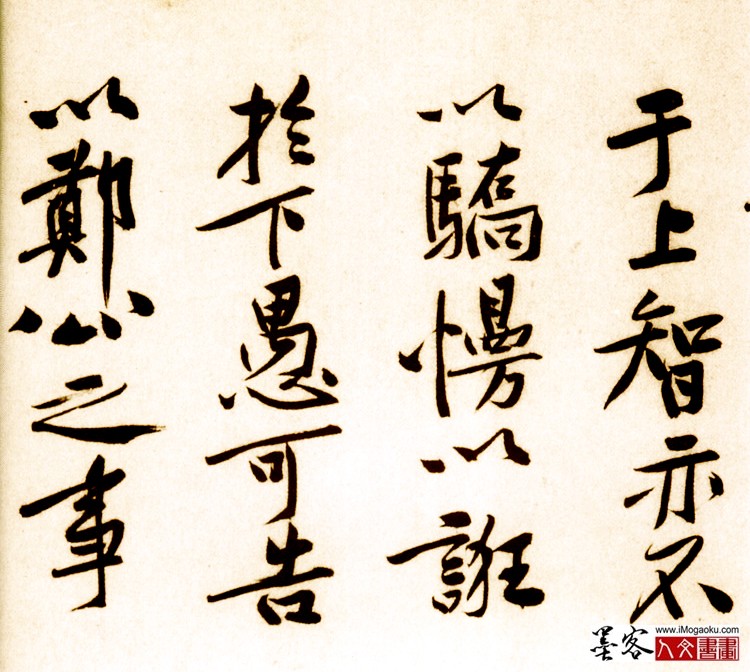 于上智亦不
以驕慢以誑
於下愚可告
以鄭公之事
墨客
www.iMogaoku.com
人文書畫